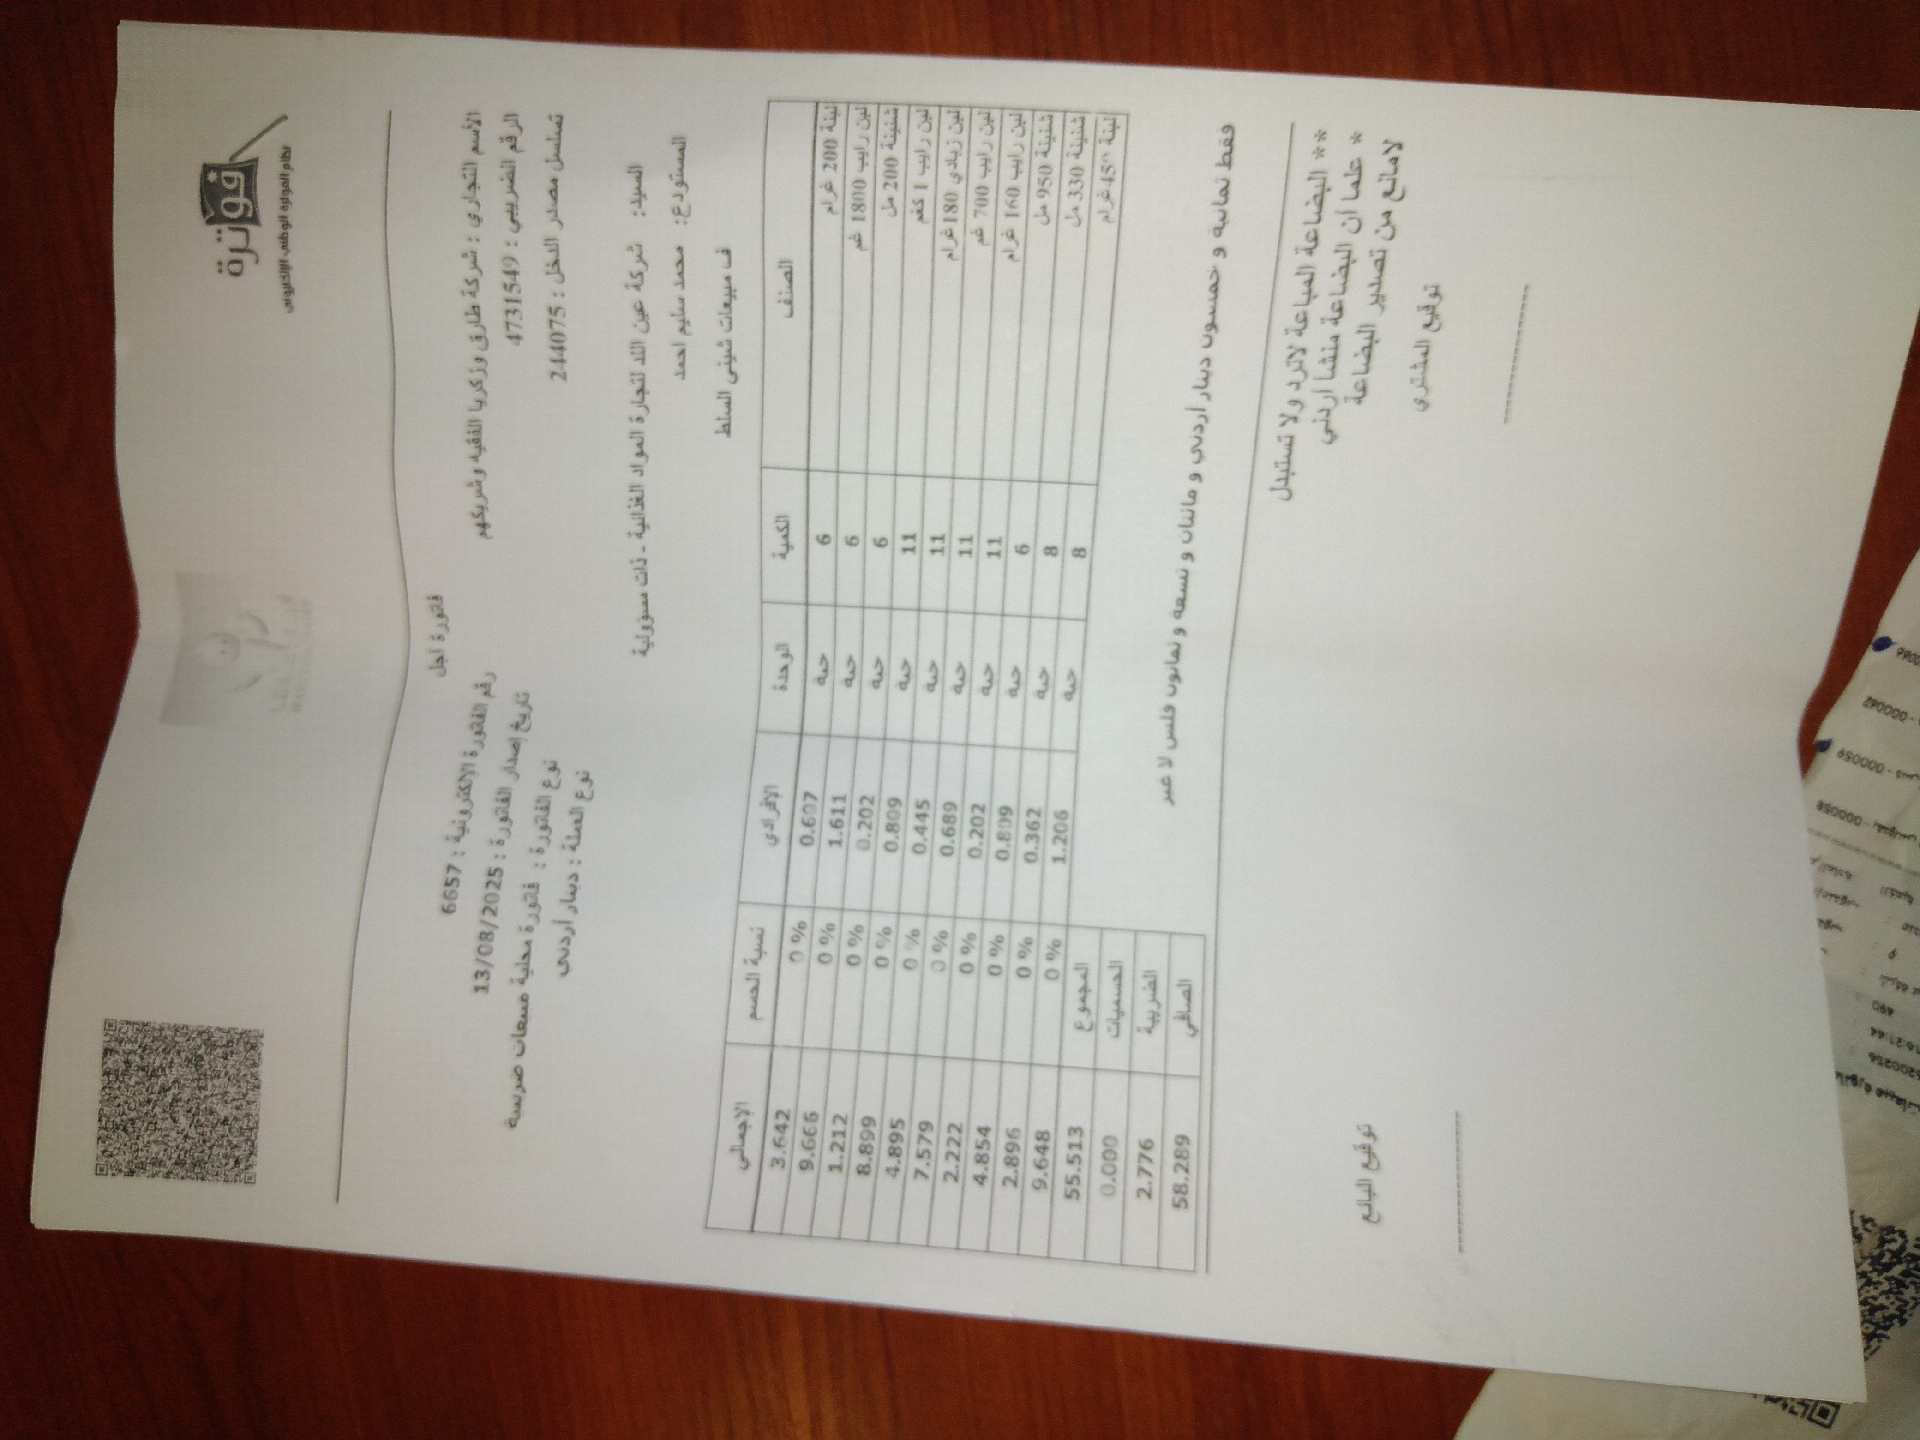 فوترة
نظام الفوترة الوطني الإلكتروني
فاتورة اجل
الأسم التجاري : شركة طارق وزكريا الفقيه وشريكهم
رقم الفاتورة الإلكترونية : 6657
الرقم الضريبي : 4731549
تاريخ إصدار الفاتورة : 13/08/2025
تسلسل مصدر الدخل : 244075
نوع الفاتورة : فاتورة محلية مبيعات ضريبية
نوع العملة : دينار أردني
السيد: شركة عين اللد لتجارة المواد الغذائية - ذات مسؤولية
المستودع: محمد سليم احمد
ف مبيعات شيني السلط
الصنف الكمية الوحدة الإفرادي نسبة الحسم الإجمالي
لبنة 200 غرام 6 حبة 0.607 0 % 3.642
لبن رايب 1800 غم 6 حبة 1.611 0 % 9.666
شنينة 200 مل 6 حبة 0.202 0 % 1.212
لبن رايب 1 كغم 11 حبة 0.809 0 % 8.899
لبن زبادي 180 غرام 11 حبة 0.445 0 % 4.895
لبن رايب 700 غم 11 حبة 0.689 0 % 7.579
لبن رايب 160 غرام 11 حبة 0.202 0 % 2.222
شنينة 950 مل 6 حبة 0.809 0 % 4.854
شنينة 330 مل 8 حبة 0.362 0 % 2.896
لبنة غرام 8 حبة 1.206 0 % 9.648
المجموع 55.513
الحسميات 0.000
الضريبة 2.776
الصافي 58.289
فقط ثمانية و خمسون دينار أردني و مائتان و تسعة و ثمانون فلس لا غير
** البضاعة المباعة لاترد ولا تستبدل
* علما ان البضاعة منشا اردني
لامانع من تصدير البضاعة
توقيع المشتري
توقيع البائع